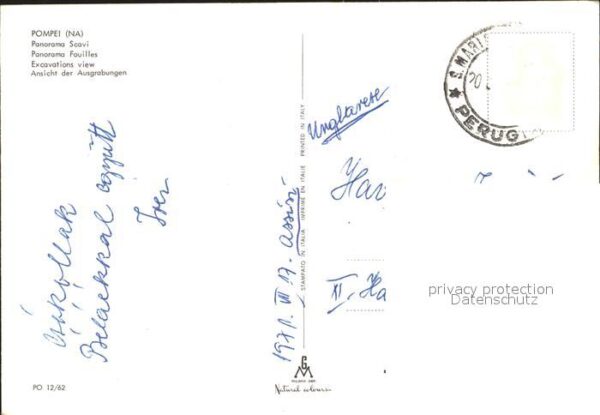 POMPEI (NA)
Panorama Scavi
Panorama Fouilles
Excavations view
Ansicht der Ausgrabungen
Csókollak
Beláékkal együtt
1971. III 17. Assisi
STAMPATO IN ITALIA - IMPRIME EN ITALIE - PRINTED IN ITALY
S. MARIA
20
PERUG
XI. Ha
privacy protection
Datenschutz
PO 12/62
GM
Natural colour